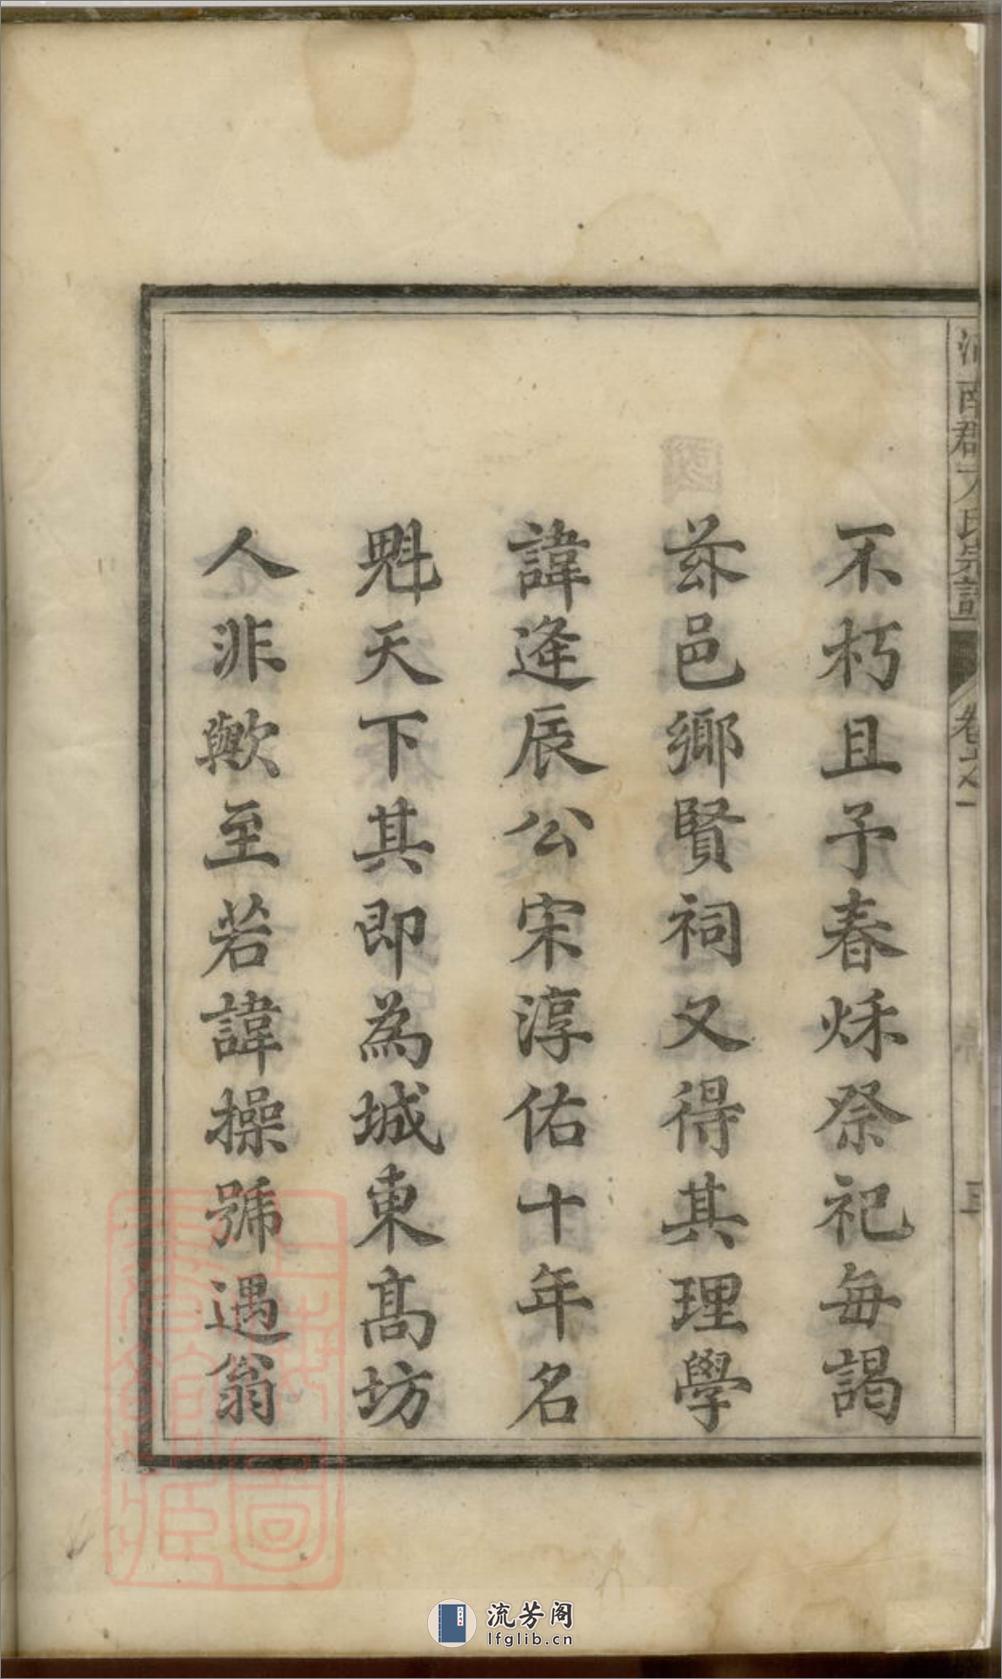 不朽且予春秌祭祀每謁
茲邑鄉賢祠又得其理學
諱逢辰公宋淳佑十年名
魁天下其即為城東高坊
人非歟至若諱操號遇翁
河南郡方氏宗譜
卷之一
三
國
上海圖書館藏
流芳阁
lfglib.cn